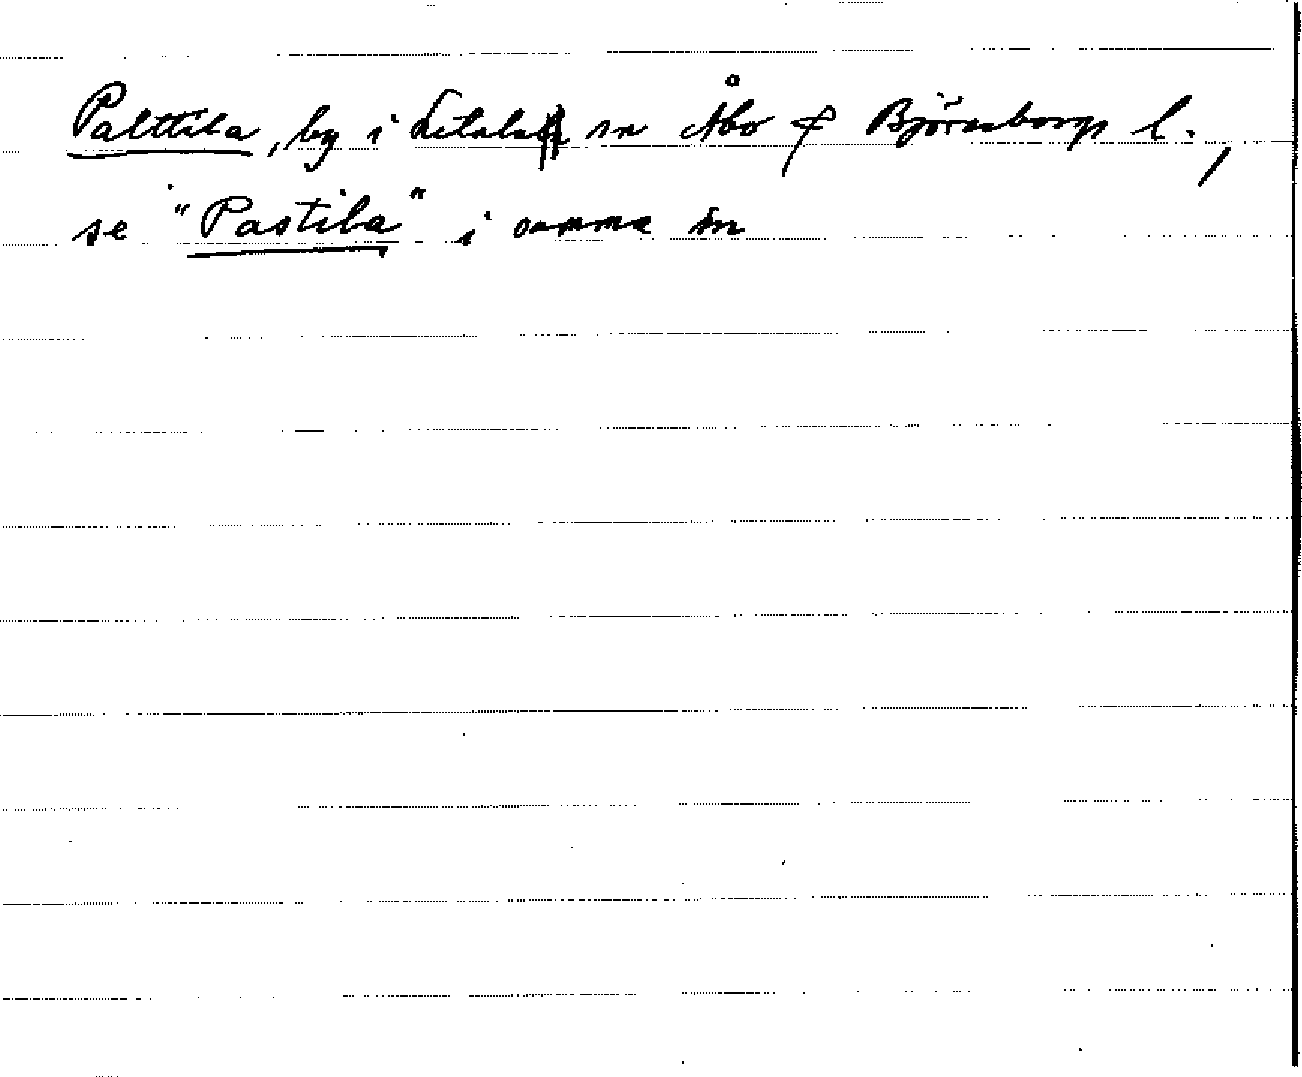 Palttila, by i Letala sn Åbo & Björneborgs l.,
se "Pastila" i samma sn